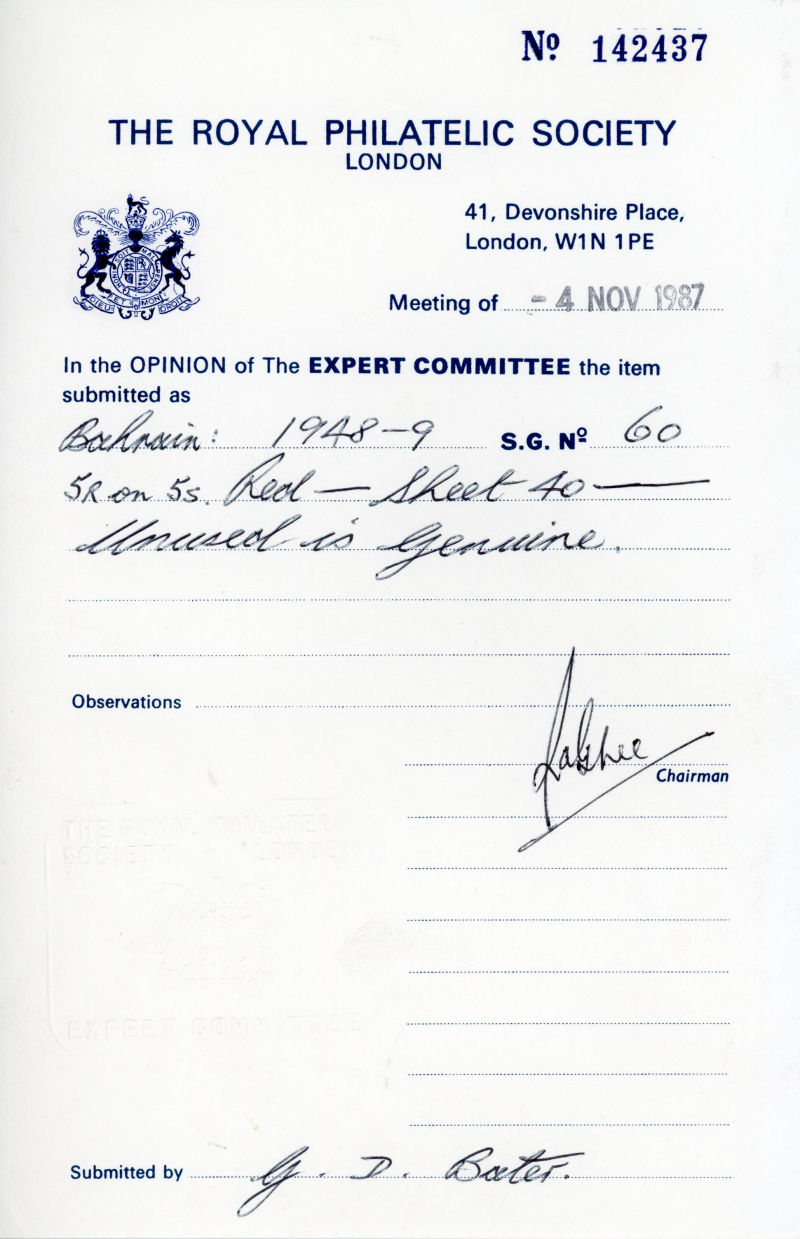 Nº 142437
THE ROYAL PHILATELIC SOCIETY
LONDON
41, Devonshire Place,
London, W1N 1PE
Meeting of - 4 NOV 1987
In the OPINION of The EXPERT COMMITTEE the item
submitted as
Bahrain: 1948-9 S.G. Nº 60
5R on 5s. Red — Sheet 40 —
Unused is Genuine.
Observations
Chairman
THE ROYAL PHILATELIC
SOCIETY LONDON
EXPERT COMMITTEE
Submitted by G. D. Bater.